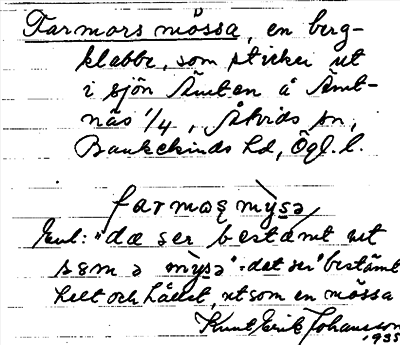 Farmors mössa, en berg-
klabbe, som sticker ut
i sjön Ämten å Ämt-
näs 1/4, Åtvids sn,
Bankekinds hd, Ögl. l.
farmoʂ mỳsə
Enl: "dæ ser bestämt ut
sɷm ə mỳsə" - det ser "bestämt
helt och hållet, ut som en mössa
Knut Erik Johansson
1935